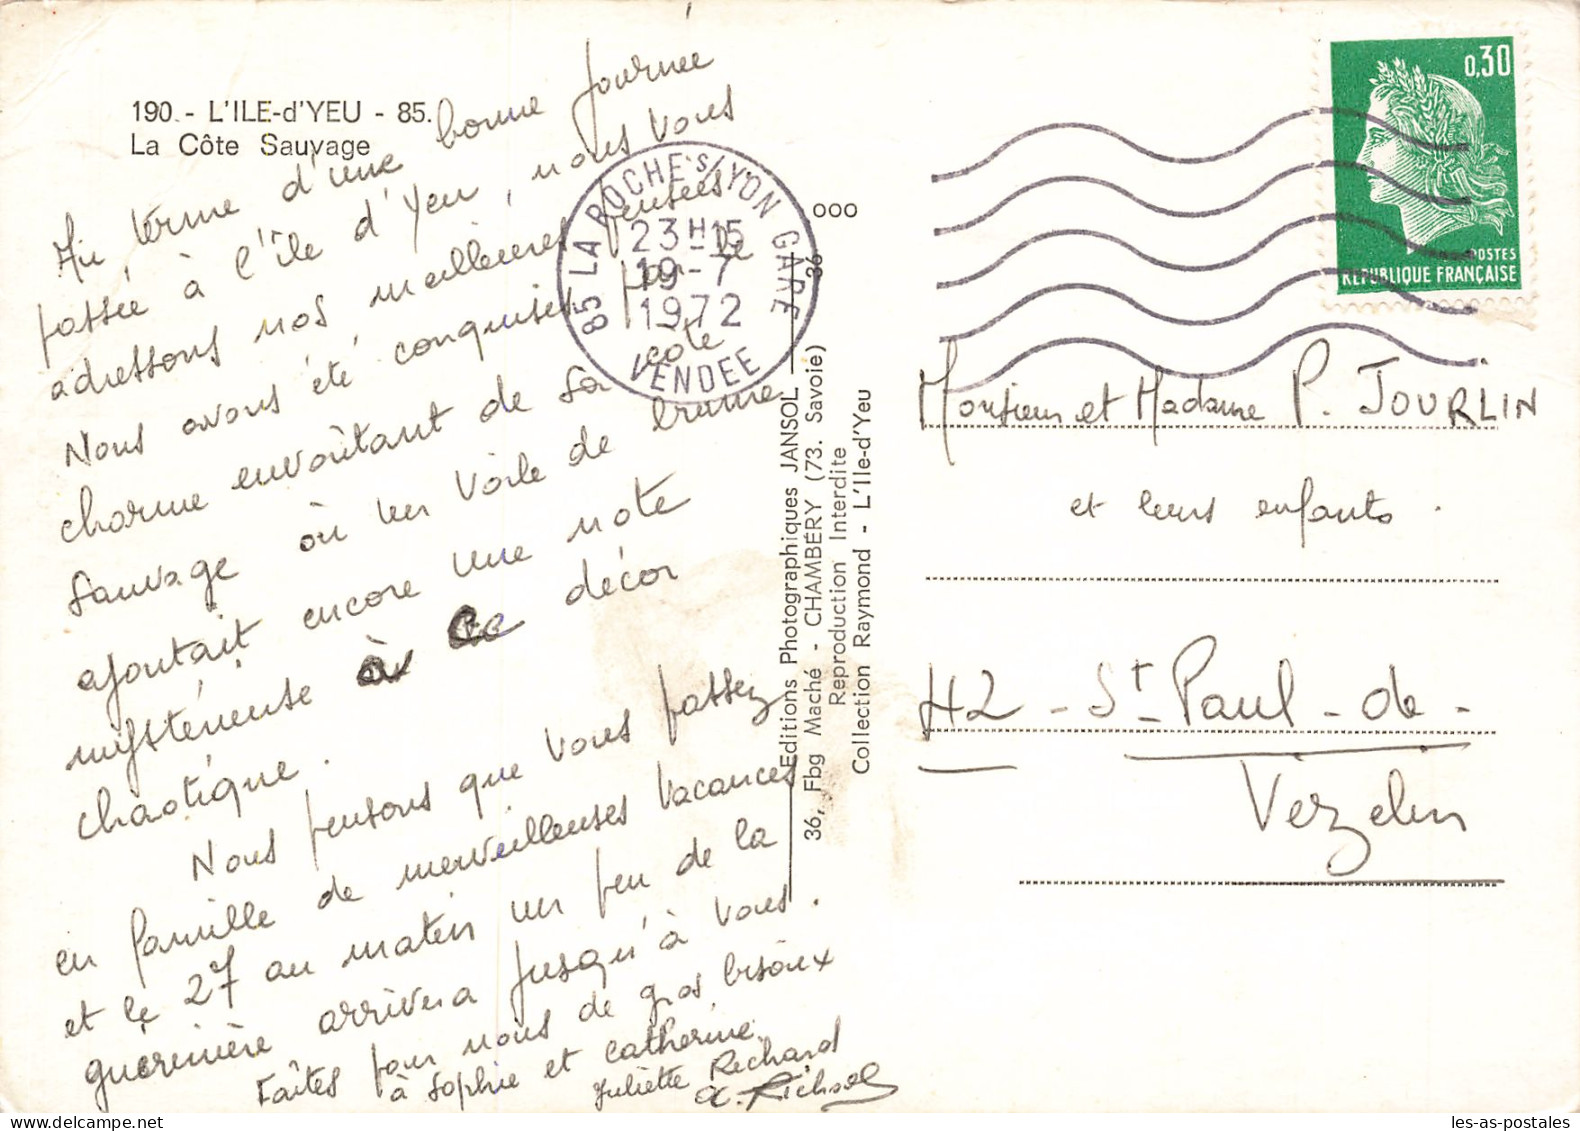 190. - L'ILE-d'YEU - 85.
La Côte Sauvage
Au terme d'une bonne journée
passée à l'île d'Yeu, nous vous
adressons nos meilleures pensées
Nous avons été conquises par le
charme envoûtant de sa côte
sauvage où un voile de brume
ajoutait encore une note
mystérieuse à ce décor
chaotique.
Nous pensons que vous passez
en famille de merveilleuses vacances
et le 27 au matin un peu de la
guérinière arrivera jusqu'à vous.
Faîtes pour nous de gros bisoux
à Sophie et Catherine.
Juliette Richard
Richard
85 LA ROCHE S/YON GARE
23H15
19-7
1972
VENDEE
ooo
36
Editions Photographiques JANSOL
36, Fbg Maché - CHAMBÉRY (73. Savoie)
Reproduction Interdite
Collection Raymond - L'Ile-d'Yeu
0,30
POSTES
REPUBLIQUE FRANÇAISE
Monsieur et Madame P. JOURLIN
et leurs enfants.
42 - St-Paul-de-
Vézelin
les-as-postales